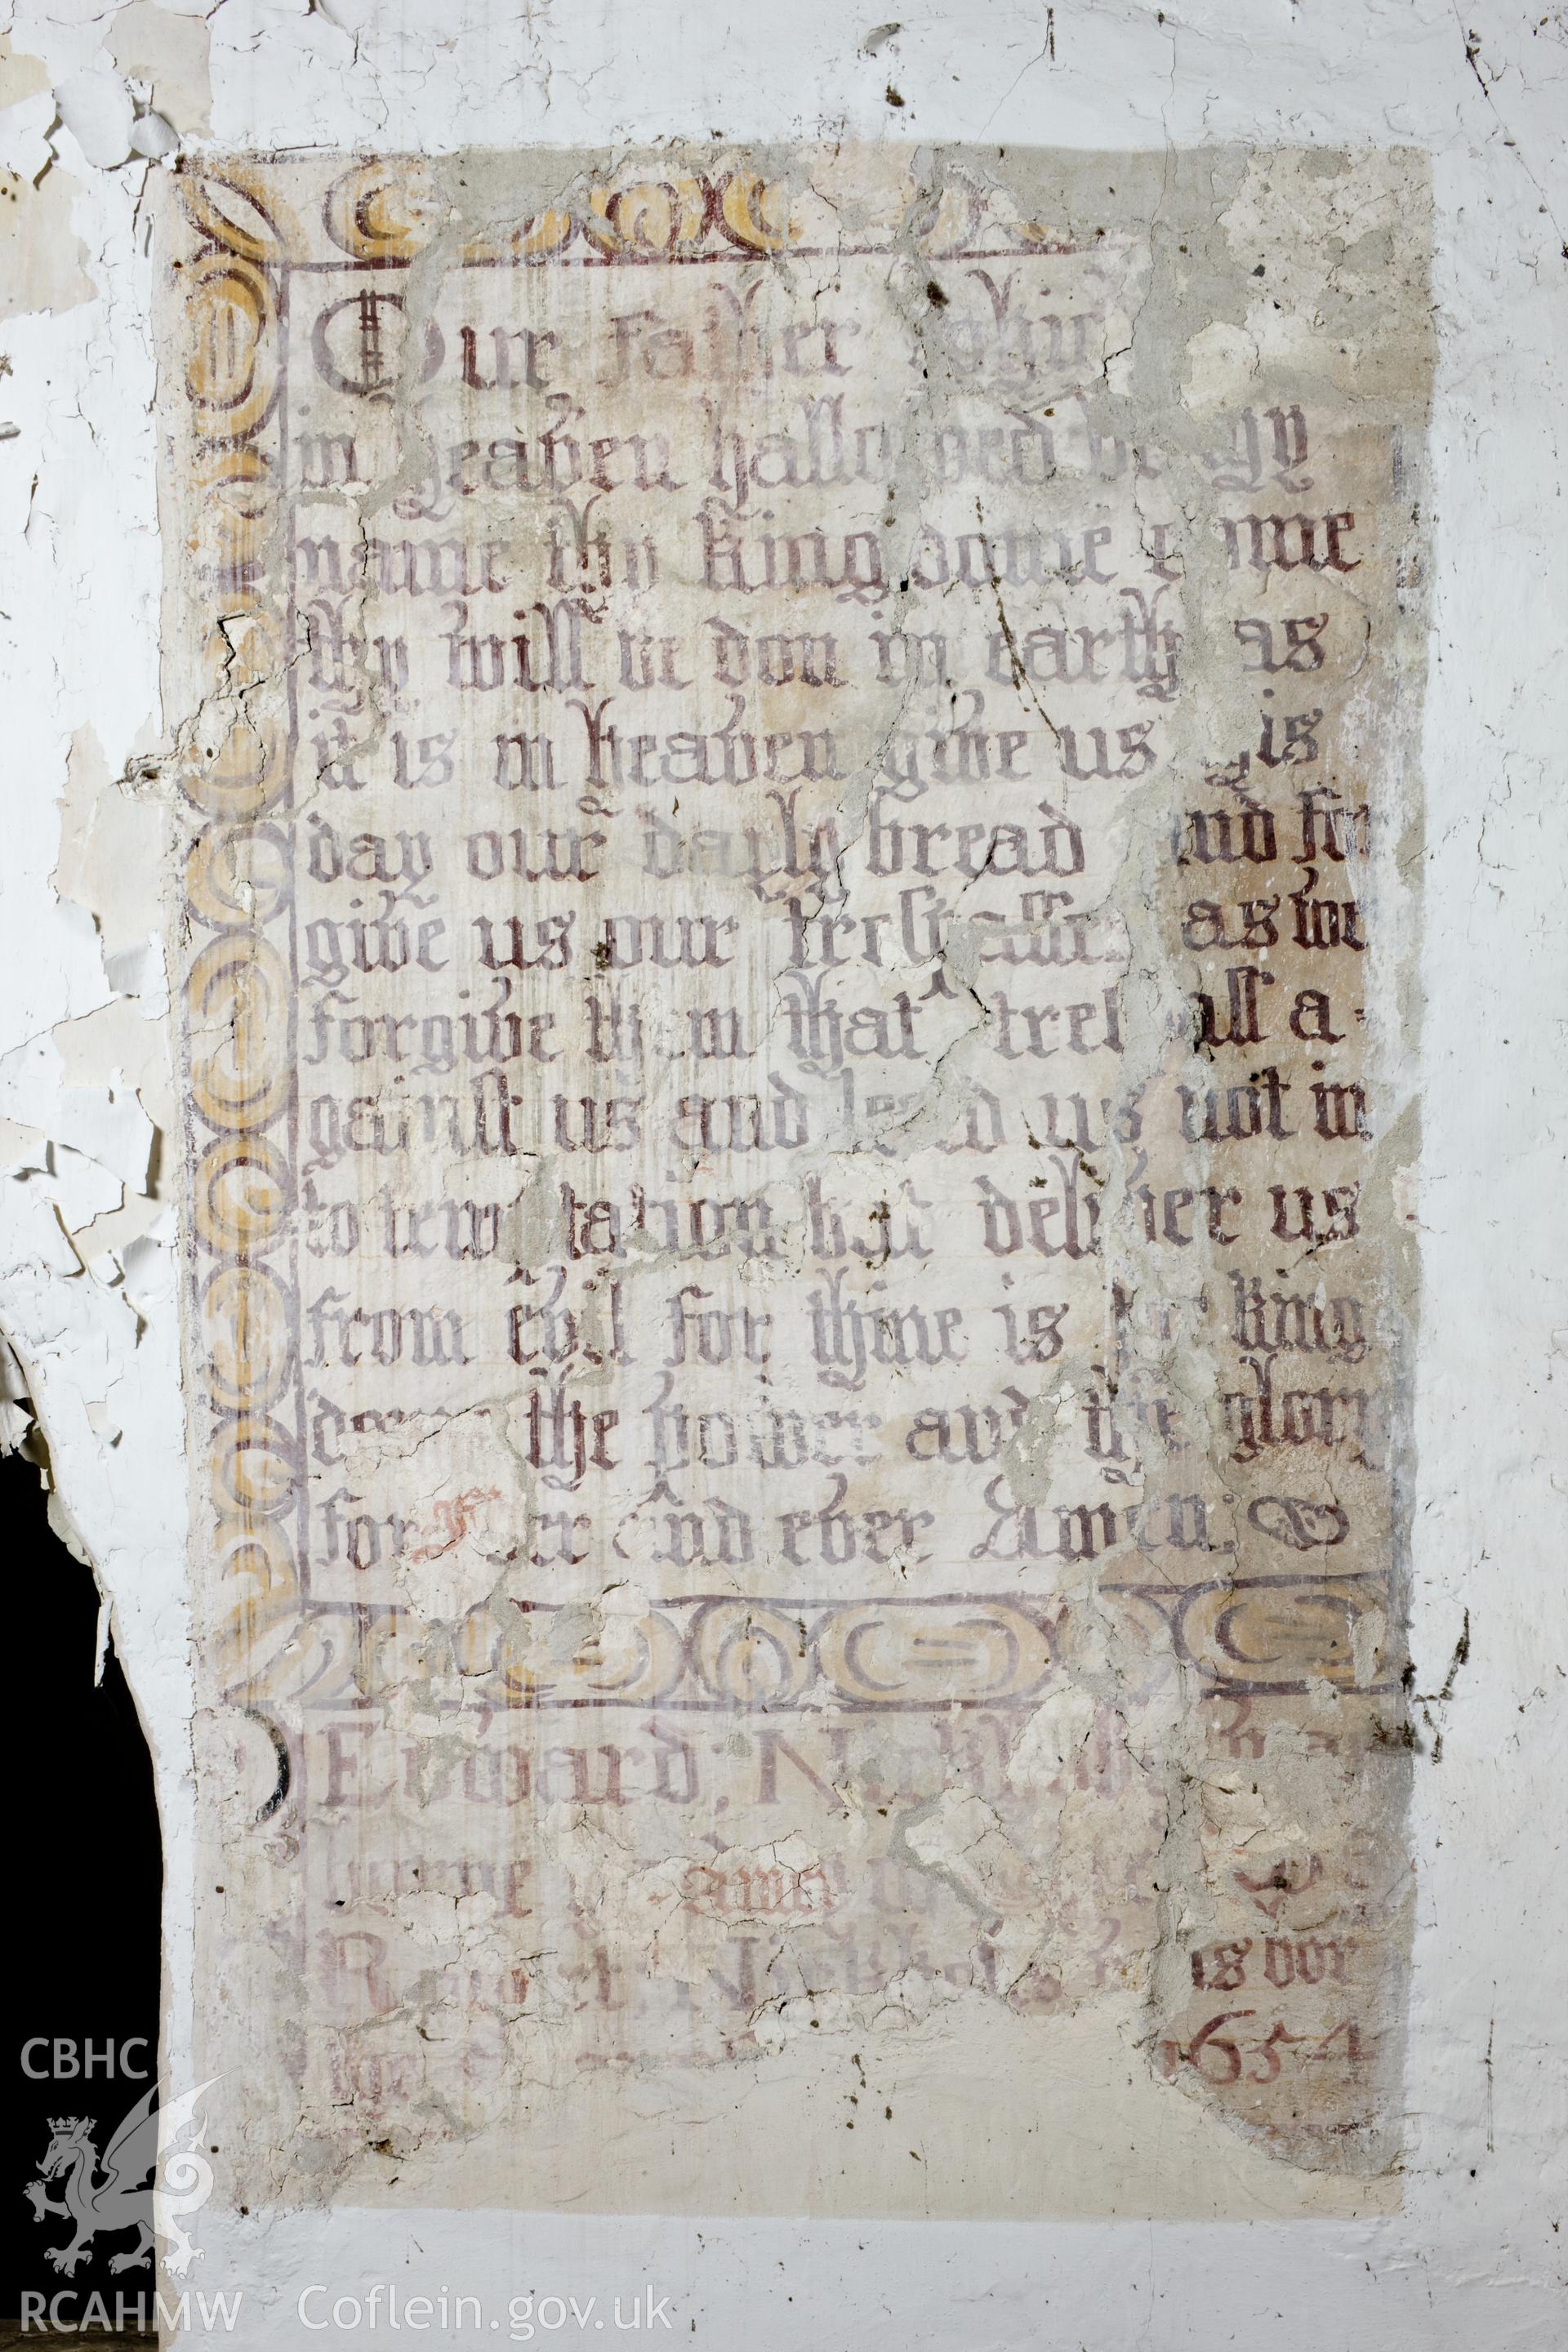 Our Father which
in heaven hallowed be thy
name thy kingdome come
thy will be don in earth as
it is in heaven give us this
day our dayly bread and for
give us our trespasses as we
forgive them that trespass a-
gainst us and lead us not in
to temptation but deliver us
from evil for thine is the king
dome the power and the glory
for ever and ever Amen:
Edward; Nickholls
Nickhols is bor
1654
CBHC
RCAHMW Coflein.gov.uk